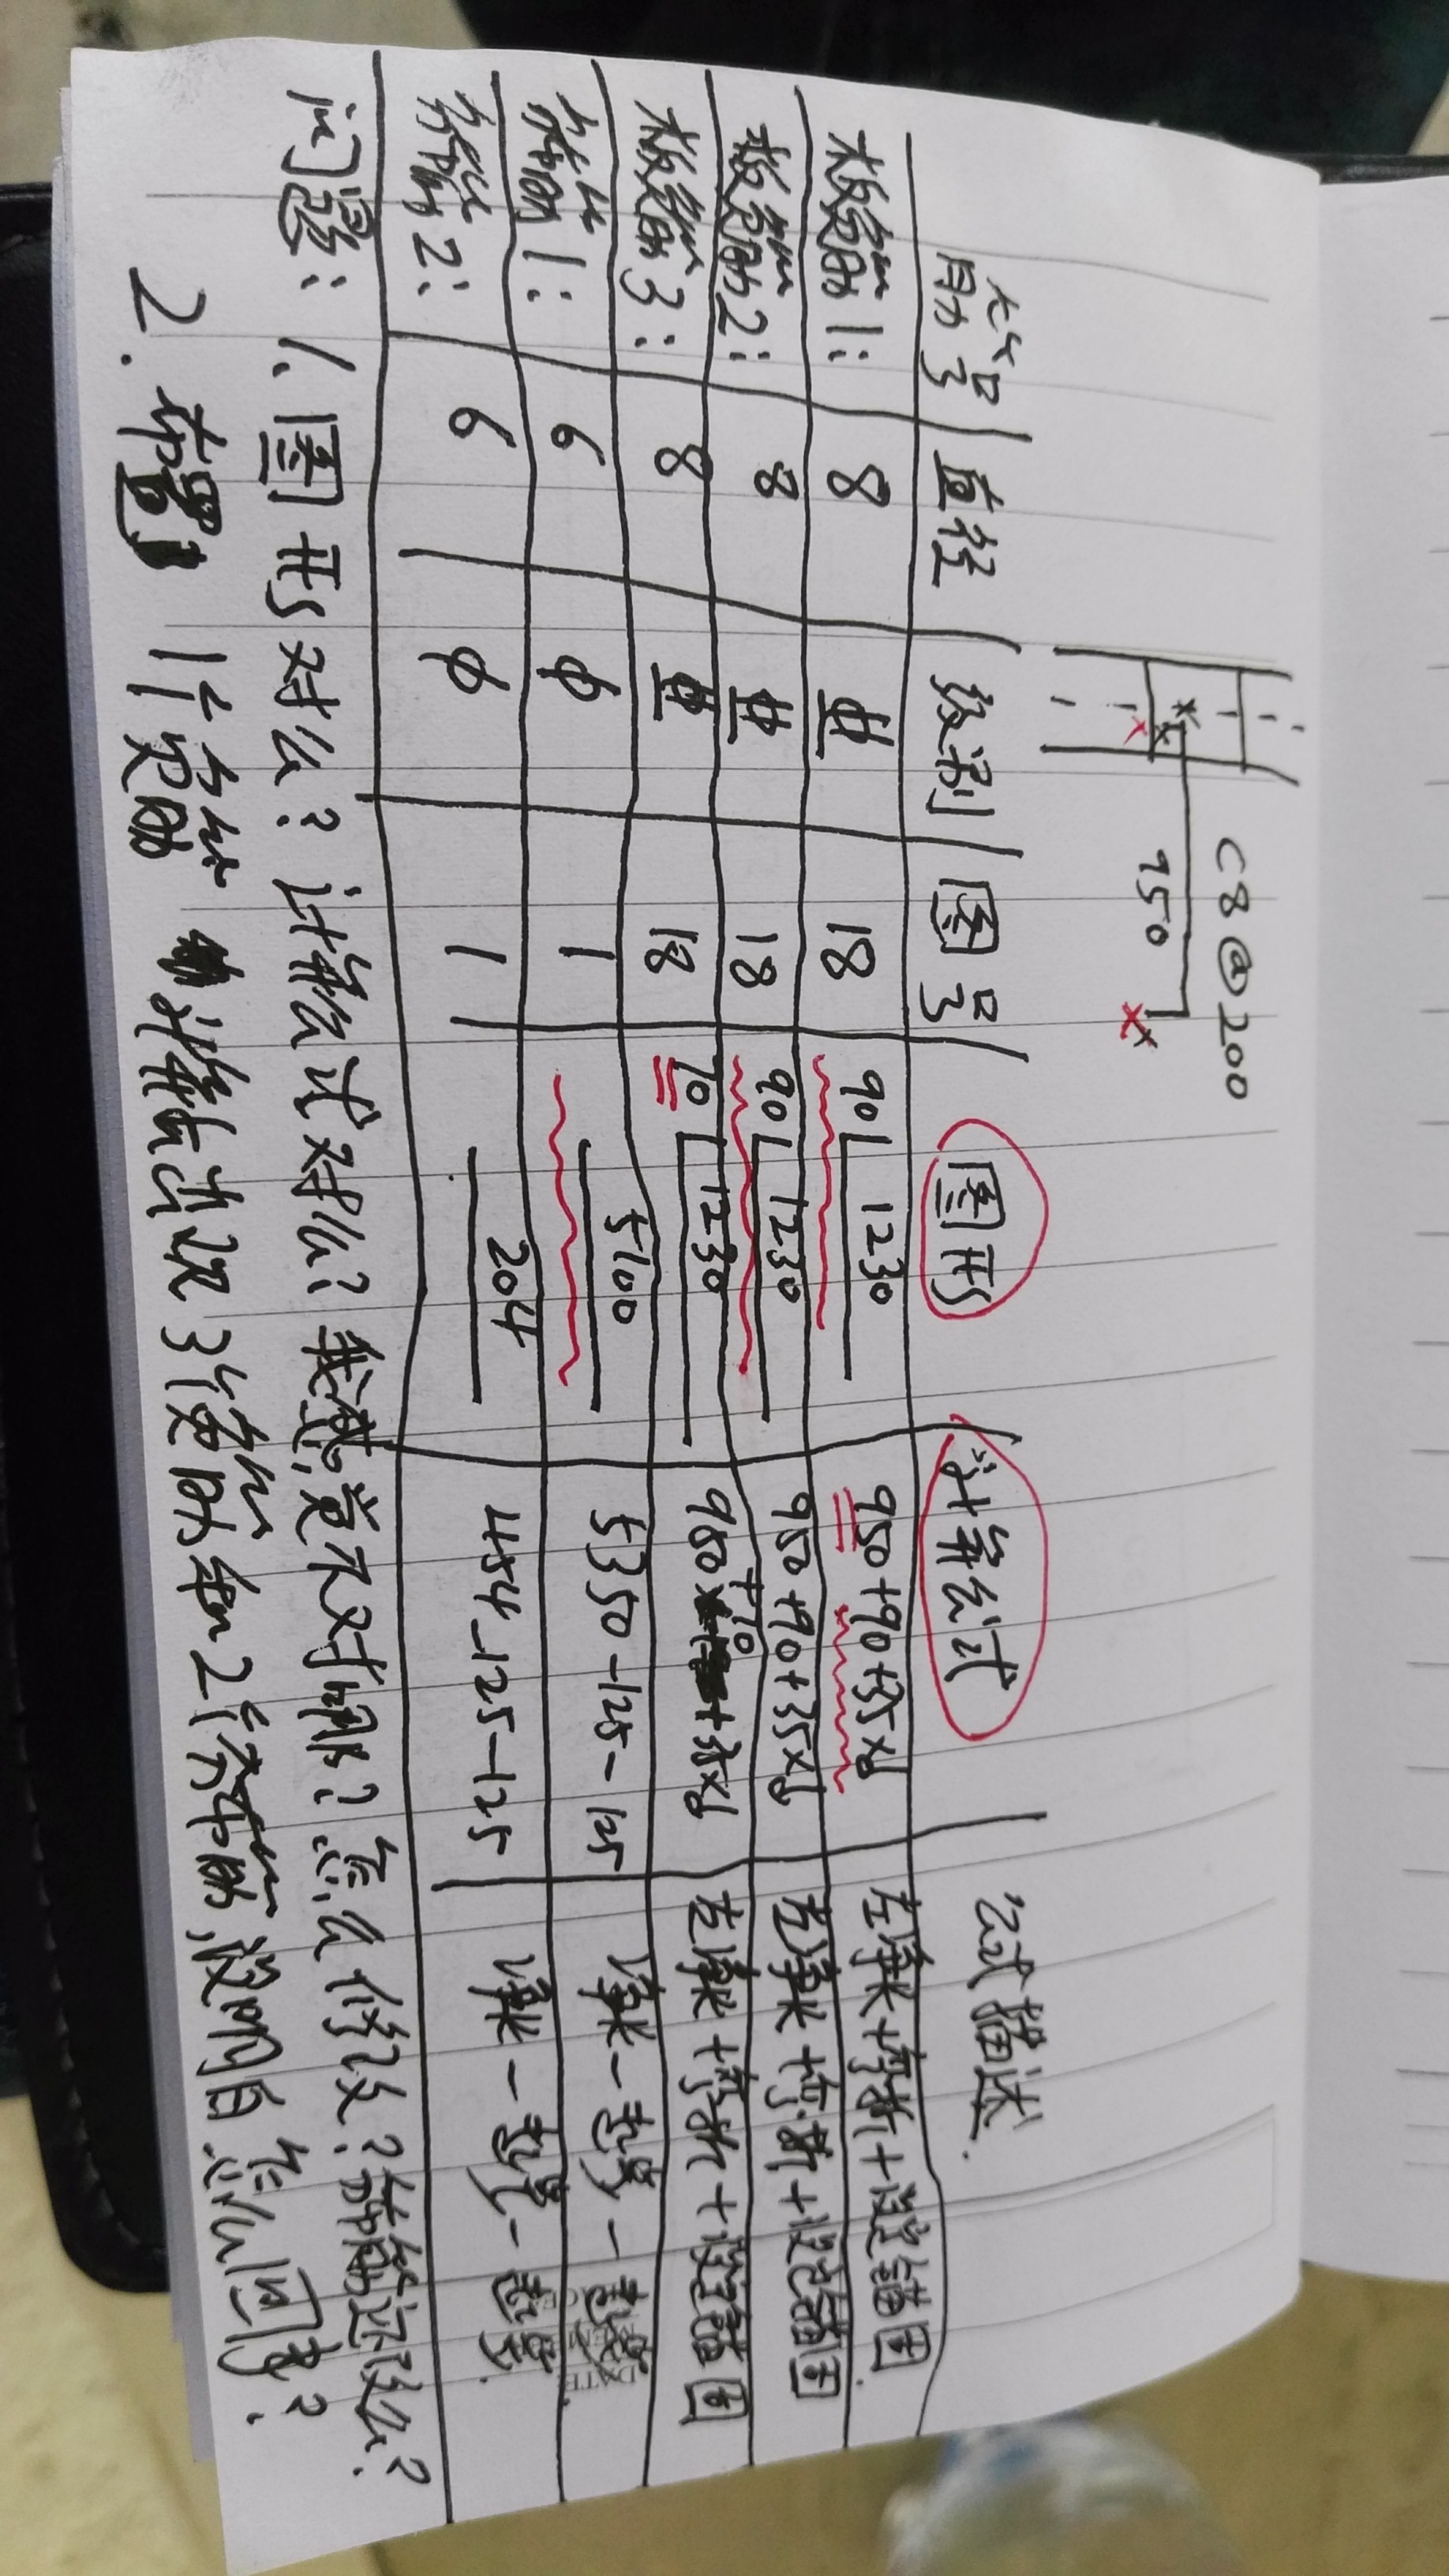 C8@200
950
筋号 直径 级别 图号 图形 计算公式 公式描述.
板负筋1: 8 18 90 1230 950+90+35×d 左净长+弯折+设定锚固
板负筋2: 8 18 90 1230 950+90+35×d 左净长+弯折+设定锚固
板负筋3: 8 18 70 1230 950+70+35×d 左净长+弯折+设定锚固
分布筋1: 6 ϕ 1 5100 5350-125-125 净长-起步-起步
分布筋2: 6 ϕ 1 204 454-125-125 净长-起步-起步.
问题: 1、图形对么? 计算公式对么? 我感觉不对啊? 怎么修改? 分布筋还改么?
2. 布置1个负筋 计算出现3个负筋和2个分布筋,没明白怎么回事?